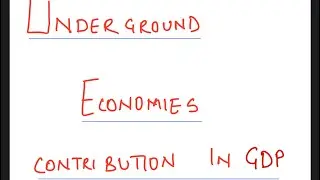 UNDERGROUND
ECONOMIES
CONTRIBUTION IN GDP